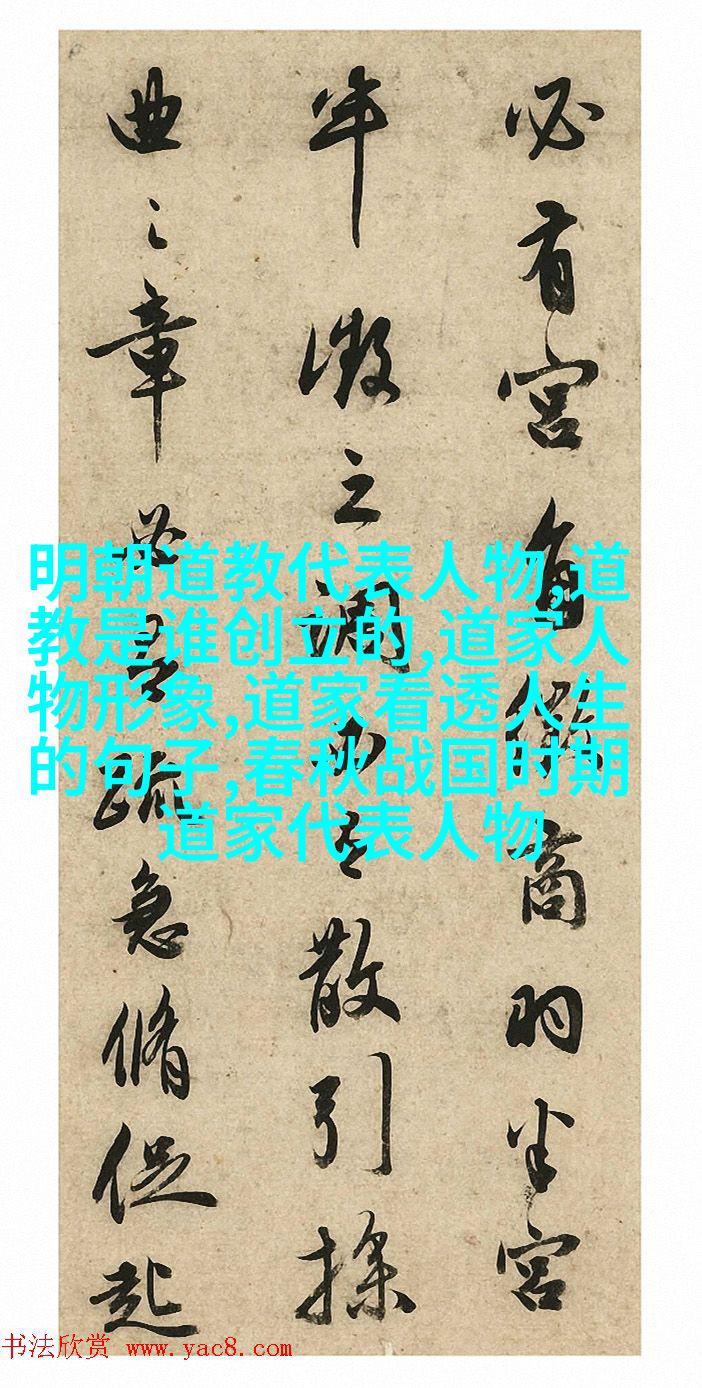 必有宮角徵商羽半宮
半徵之調散引操
曲之章疏急脩促起
明朝道教代表人物,道
教是谁创立的,道家人
物形象,道家看透人生
的句子,春秋战国时期
道家代表人物
书法欣赏 www.yac8.com